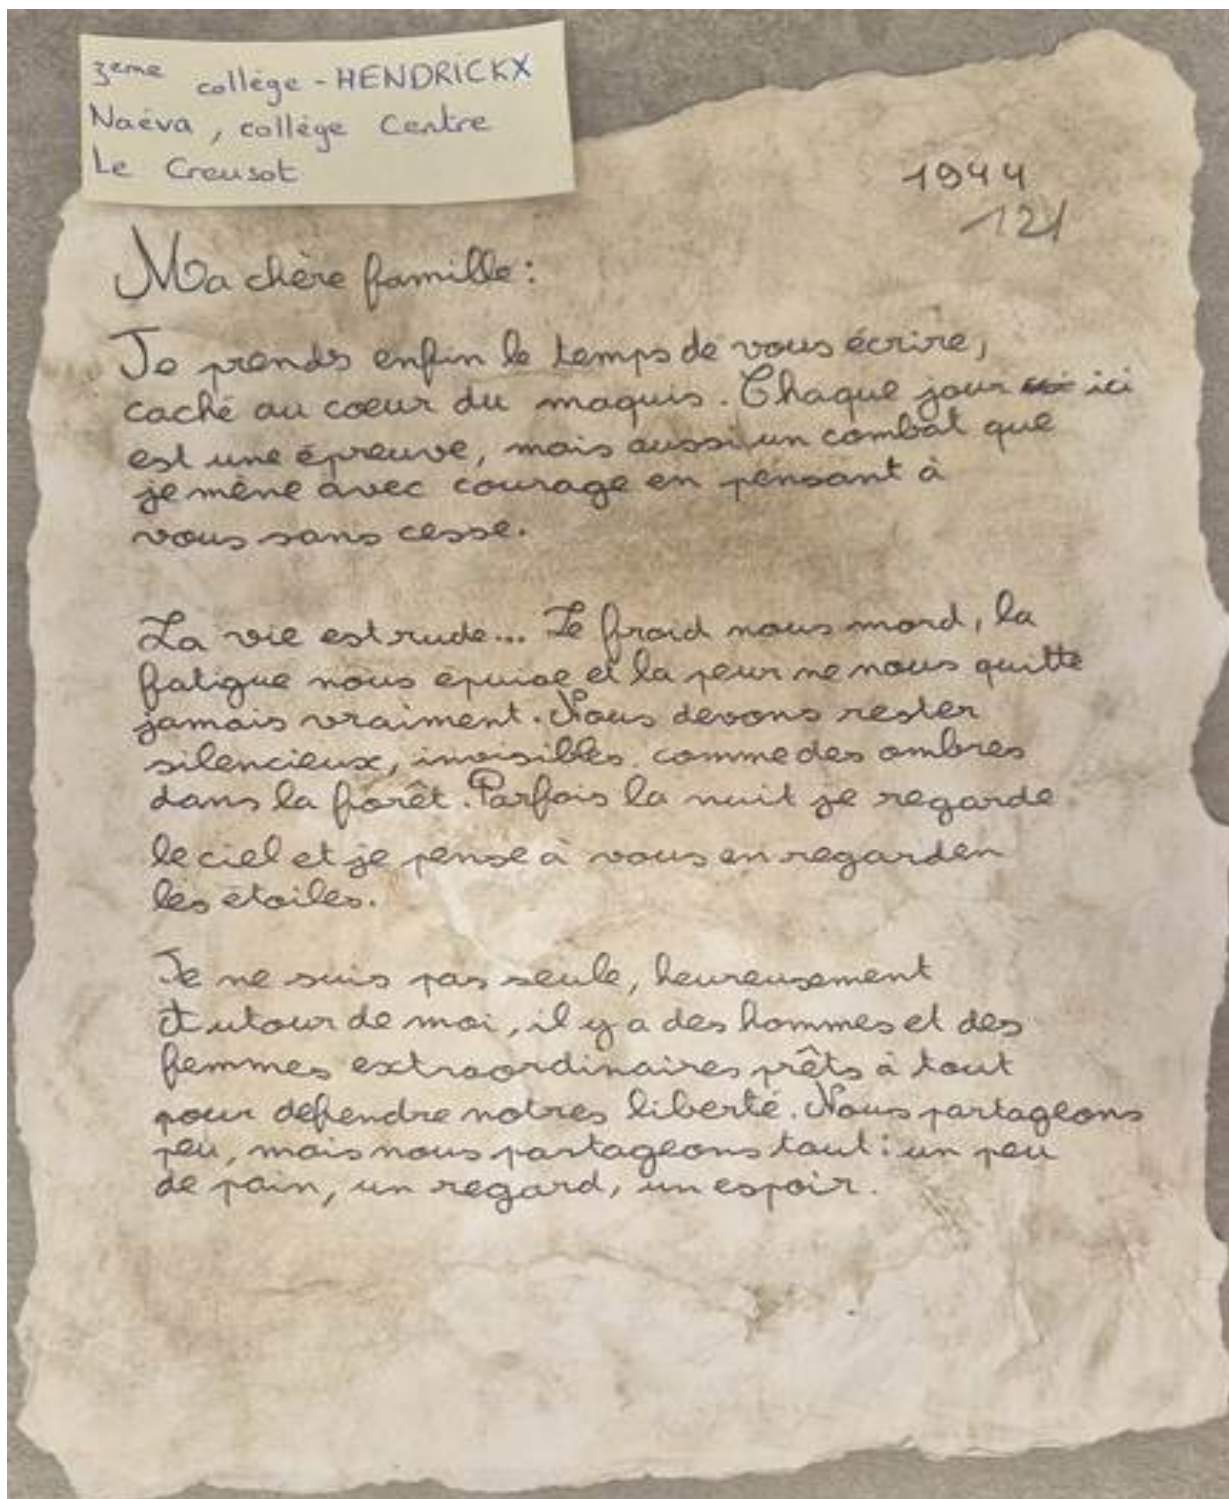 3eme collège - HENDRICKX
Naéva, collège Centre
Le Creusot
1944
121
Ma chère famille :
Je prends enfin le temps de vous écrire,
caché au coeur du maquis. Chaque jour ici
est une épreuve, mais aussi un combat que
je mène avec courage en pensant à
vous sans cesse.
La vie est rude... Le froid nous mord, la
fatigue nous épuise et la peur ne nous quitte
jamais vraiment. Nous devons rester
silencieux, invisibles. comme des ombres
dans la forêt. Parfois la nuit je regarde
le ciel et je pense à vous en regarden
les étoiles.
Je ne suis pas seule, heureusement
Autour de moi, il y a des hommes et des
femmes extraordinaires prêts à tout
pour défendre notres liberté. Nous partageons
peu, mais nous partageons tout : un peu
de pain, un regard, un espoir.